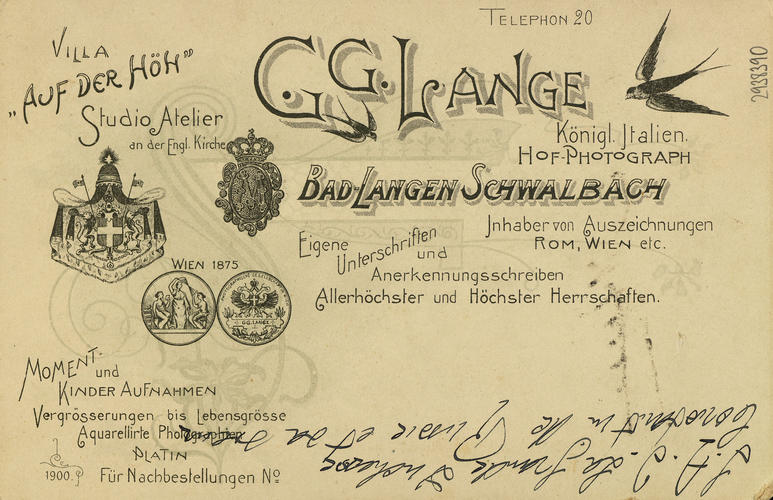 TELEPHON 20
VILLA
„AUF DER HÖH”
Studio Atelier
an der Engl. Kirche
G. G. LANGE
Königl. Italien.
HOF-PHOTOGRAPH
BAD-LANGEN SCHWALBACH
Inhaber von Auszeichnungen
ROM, WIEN etc.
Eigene Unterschriften und
Anerkennungsschreiben
Allerhöchster und Höchster Herrschaften.
WIEN 1875
GG. LANGE
MOMENT- und
KINDER AUFNAHMEN
Vergrösserungen bis Lebensgrösse
Aquarellirte Photographien
PLATIN
1900.
Für Nachbestellungen No
2938390
S. A. I. la Grande Duchesse